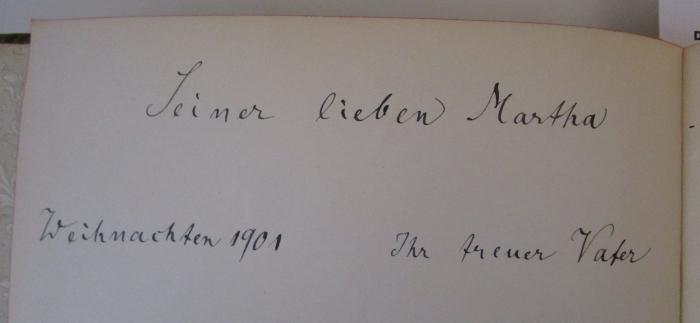 Seiner lieben Martha
Weihnachten 1901 Ihr treuer Vater
D